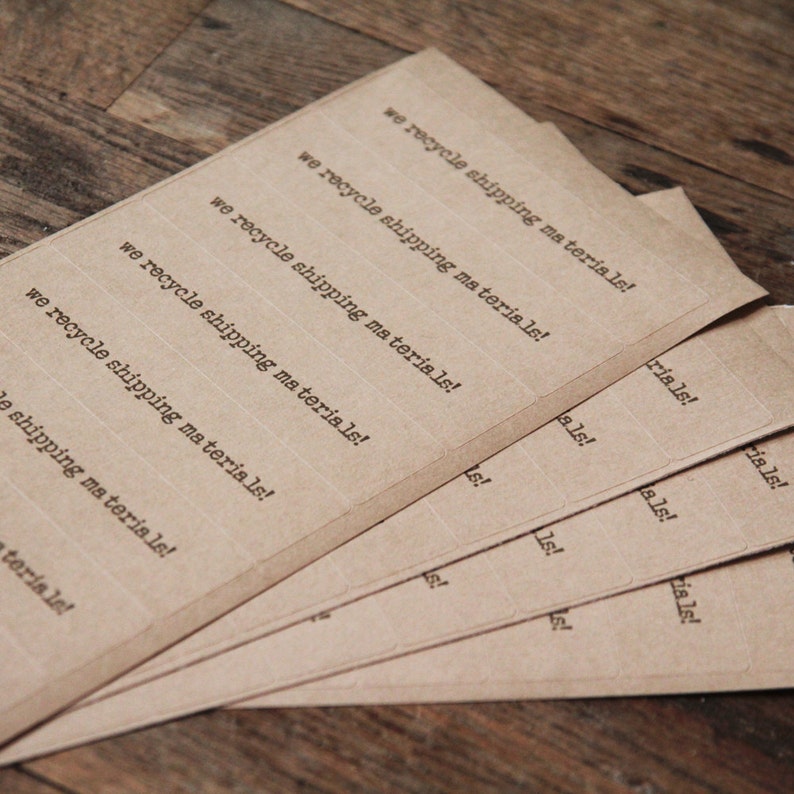 we recycle shipping materials!
we recycle shipping materials!
we recycle shipping materials!
we recycle shipping materials!
we recycle shipping materials!
shipping materials!
materials!
materials!
als!
ials!
als!
ls!
als!
ials!
ls!